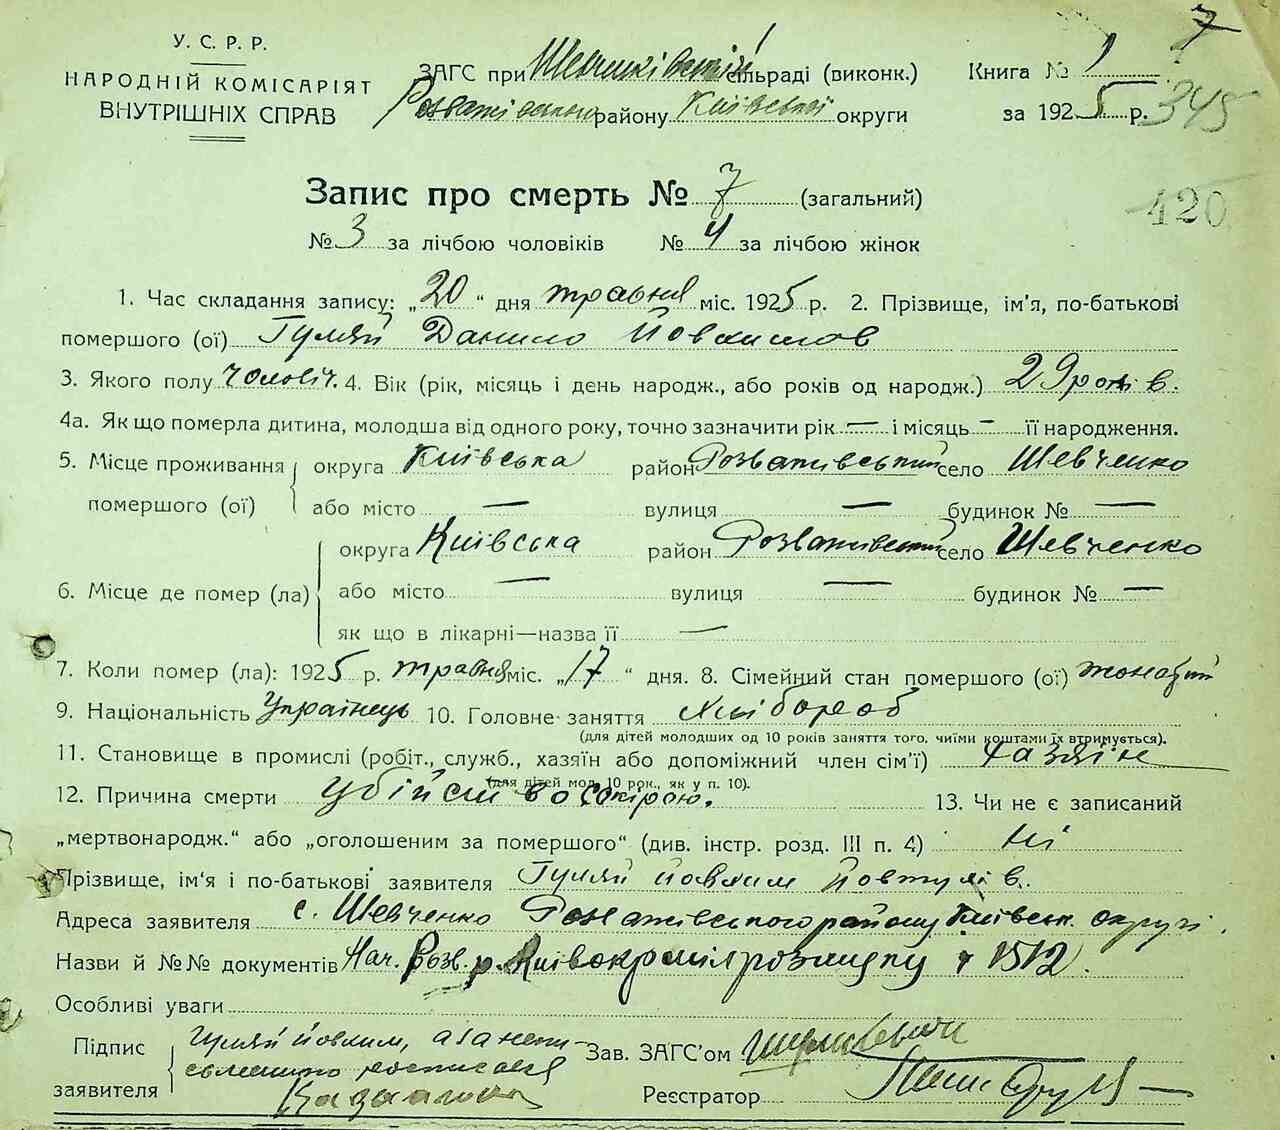 7
У. С. Р. Р.
НАРОДНІЙ КОМІСАРІЯТ
ВНУТРІШНІХ СПРАВ
ЗАГС при Шевченківській сільраді (виконк.)
Розважівського району Київської округи
Книга № 1
за 1925 р. 345
Запис про смерть № 7 (загальний)
420
№ 3 за лічбою чоловіків № 4 за лічбою жінок
1. Час складання запису: „20“ дня травня міс. 1925 р. 2. Прізвище, ім'я, по-батькові
помершого (ої) Гуляй Данило Йовхимов
3. Якого полу чоловіч. 4. Вік (рік, місяць і день народж., або років од народж.) 29 років.
4а. Як що померла дитина, молодша від одного року, точно зазначити рік — і місяць — її народження.
5. Місце проживання помершого (ої) округа Київська район Розважівський село Шевченко
або місто — вулиця — будинок № —
6. Місце де помер (ла) округа Київська район Розважівський село Шевченко
або місто — вулиця — будинок № —
як що в лікарні—назва її —
7. Коли помер (ла): 1925 р. травня міс. „17“ дня. 8. Сімейний стан помершого (ої) жонатий
9. Національність Українець 10. Головне заняття Хлібороб
(для дітей молодших од 10 років заняття того, чиїми коштами їх втримується).
11. Становище в промислі (робіт., служб., хазяїн або допоміжний член сім'ї) хазяїн
(для дітей мол. 10 рок., як у п. 10).
12. Причина смерти убійство сокірою. 13. Чи не є записаний
„мертвонародж.“ або „оголошеним за помершого“ (див. інстр. розд. III п. 4) ні
Прізвище, ім'я і по-батькові заявителя Гуляй Йовхим
Адреса заявителя с. Шевченко Розважівського району Київськ. округі.
Назви й №№ документів Нач. Розв. р. 1512.
Особливі уваги
Підпис заявителя Гуляй Йовхим, а за
росписался
Зав. ЗАГС'ом
Реєстратор